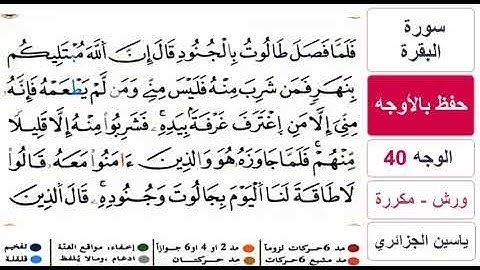 سورة
البقرة
حفظ بالأوجه
الوجه 40
ورش - مكررة
ياسين الجزائري
فَلَمَّا فَصَلَ طَالُوتُ بِالْجُنُودِ قَالَ إِنَّ اَللَّهَ مُبْتَلِيكُم
بِنَهَرٍ فَمَن شَرِبَ مِنْهُ فَلَيْسَ مِنِّي وَمَن لَّمْ يَطْعَمْهُ فَإِنَّهُۥ
مِنِّيَ إِلَّا مَنِ اِغْتَرَفَ غَرْفَةً بِيَدِهِۦ فَشَرِبُوا مِنْهُ إِلَّا قَلِيلًا
مِّنْهُمْ فَلَمَّا جَاوَزَهُۥ هُوَ وَالَّذِينَ ءَامَنُوا مَعَهُۥ قَالُوا
لَا طَاقَةَ لَنَا اَلْيَوْمَ بِجَالُوتَ وَجُنُودِهِۦ قَالَ اَلَّذِينَ
مد 6 حركات لزوماً مد 2 أو 4 أو 6 جوازاً إخفاء، مواقع الغنة تفخيم
مد مشبع 6 حركات مد حركتان ادغام، ومالا يلفظ قلقلة